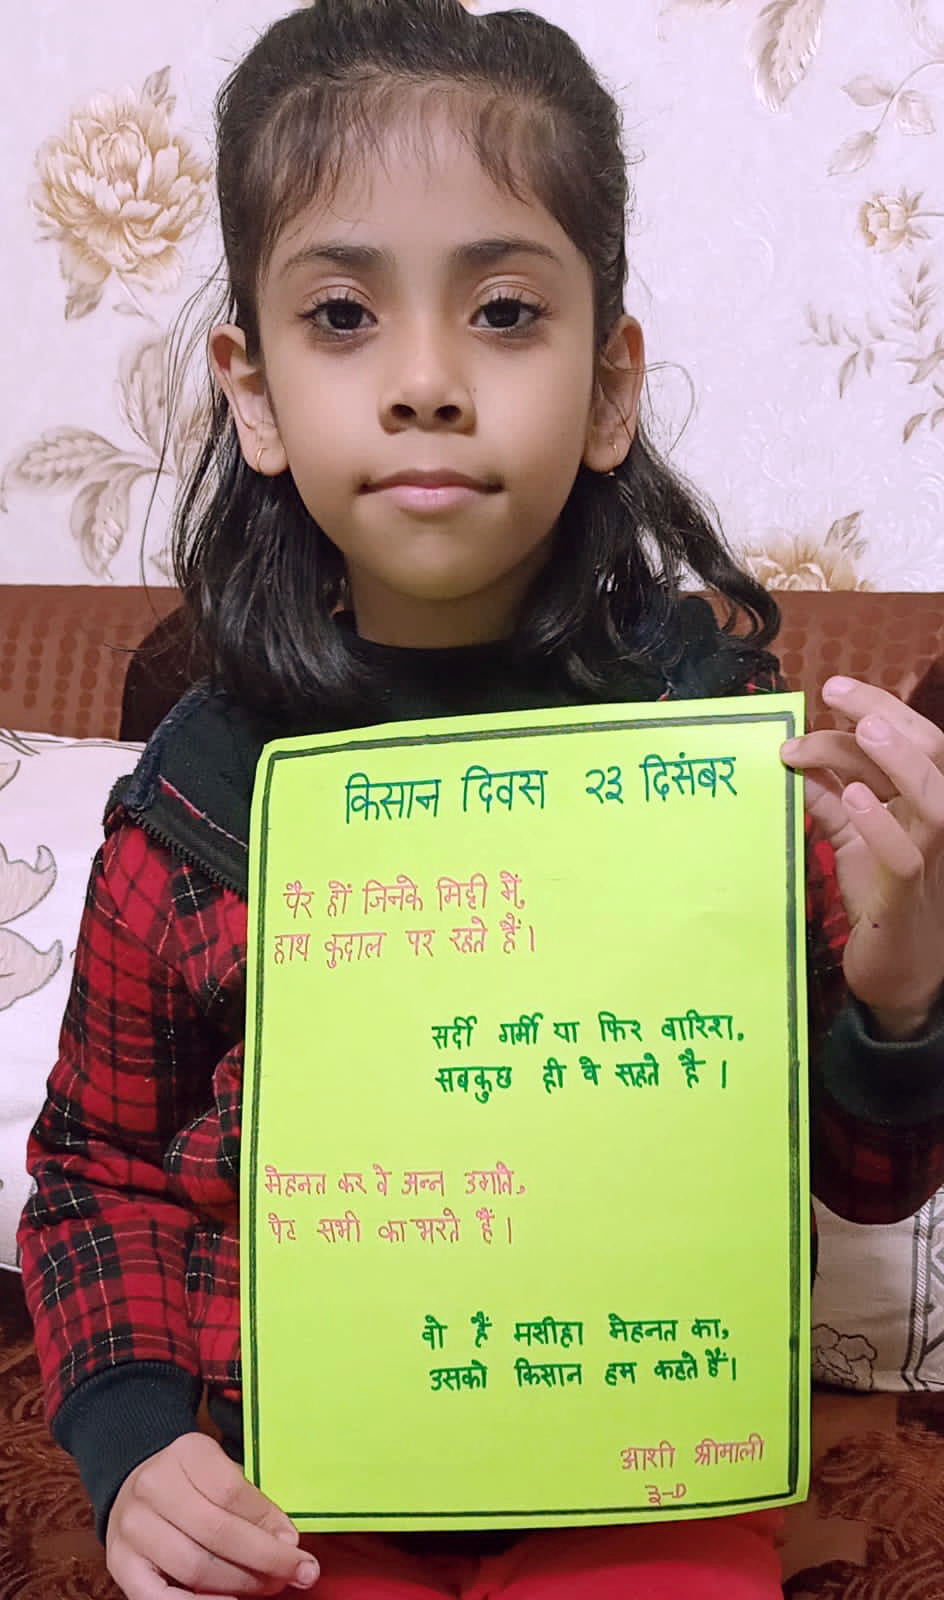 किसान दिवस २३ दिसंबर
पैर हों जिनके मिट्टी में,
हाथ कुदाल पर रहते हैं।
सर्दी गर्मी या फिर बारिश,
सबकुछ ही वे सहते है।
मेहनत कर वे अन्न उगाते,
पेट सभी का भरते हैं।
वो हैं मसीहा मेहनत का,
उसको किसान हम कहते हैं।
आशी श्रीमाली
३-D